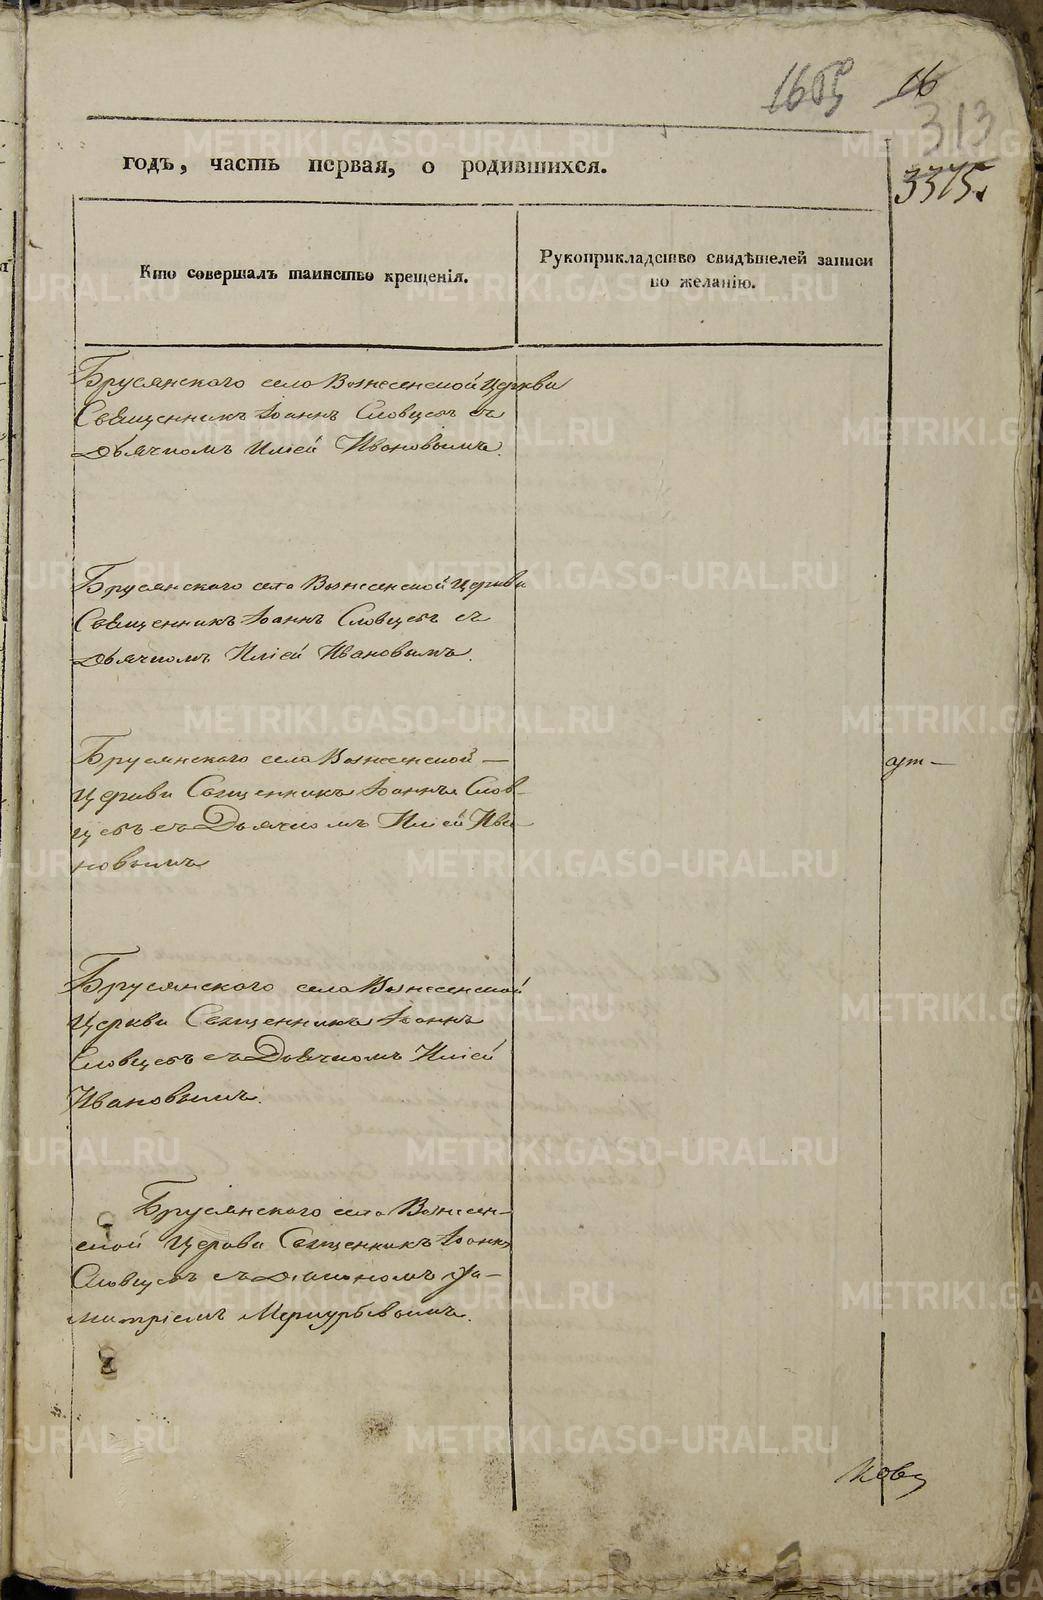 16
313
3315.
годъ, часть первая, о родившихся.
Кто совершалъ таинство крещенія.
Рукоприкладство свидѣтелей записи
по желанію.
Брусянского села Вознесенской Церкви
Священникъ Іоаннъ Словцовъ съ
Дьячкомъ Иліей Ивановымъ.
Брусянского села Вознесенской Церкви
Священникъ Іоаннъ Словцовъ съ
Дьячкомъ Иліей Ивановымъ.
Брусянского села Вознесенской —
Церкви Священникъ Іоаннъ Слов-
цовъ съ Дьячкомъ Иліей Ива-
новымъ
Брусянского села Вознесенской
Церкви Священникъ Іоаннъ
Словцовъ съ Дьячкомъ Иліей
Ивановымъ.
Брусянского села Вознесен-
ской Церкви Священникъ Іоаннъ
Словцовъ съ Діакономъ Ди-
митріемъ Меркурьевымъ.
METRIKI.GASO-URAL.RU